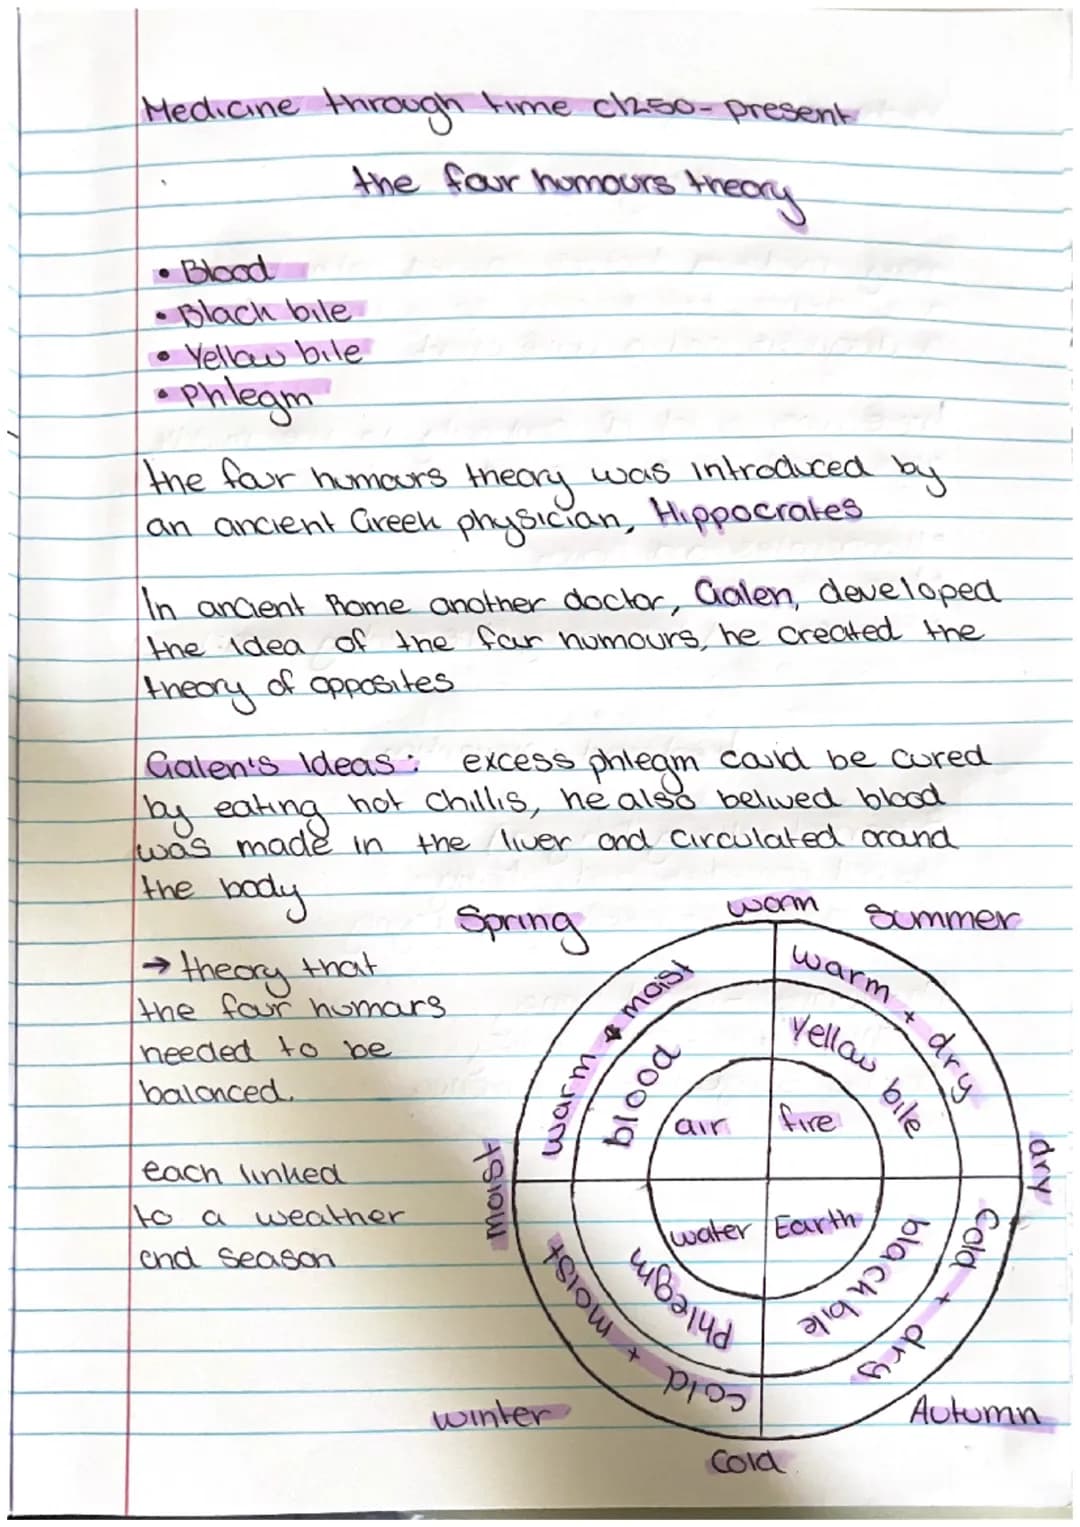 Medicine through time c1250-present
the four humours theory
• Blood
• Black bile
• Yellow bile
• Phlegm
the four humours theory was introduced by
an ancient Greek physician, Hippocrates
In ancient Rome another doctor, Galen, developed
the idea of the four humours, he created the
theory of opposites
Galen's Ideas: excess phlegm could be cured
by eating hot chillis, he also belived blood
was made in the liver and circulated around
the body
→ theory that
the four humours
needed to be
balanced.
each linked
to a weather
and season
Spring
warm
Summer
warm + moist
warm + dry
blood
Yellow bile
air
fire
moist
dry
water
Earth
Phlegm
black bile
cold + moist
Cold + dry
winter
Autumn
Cold